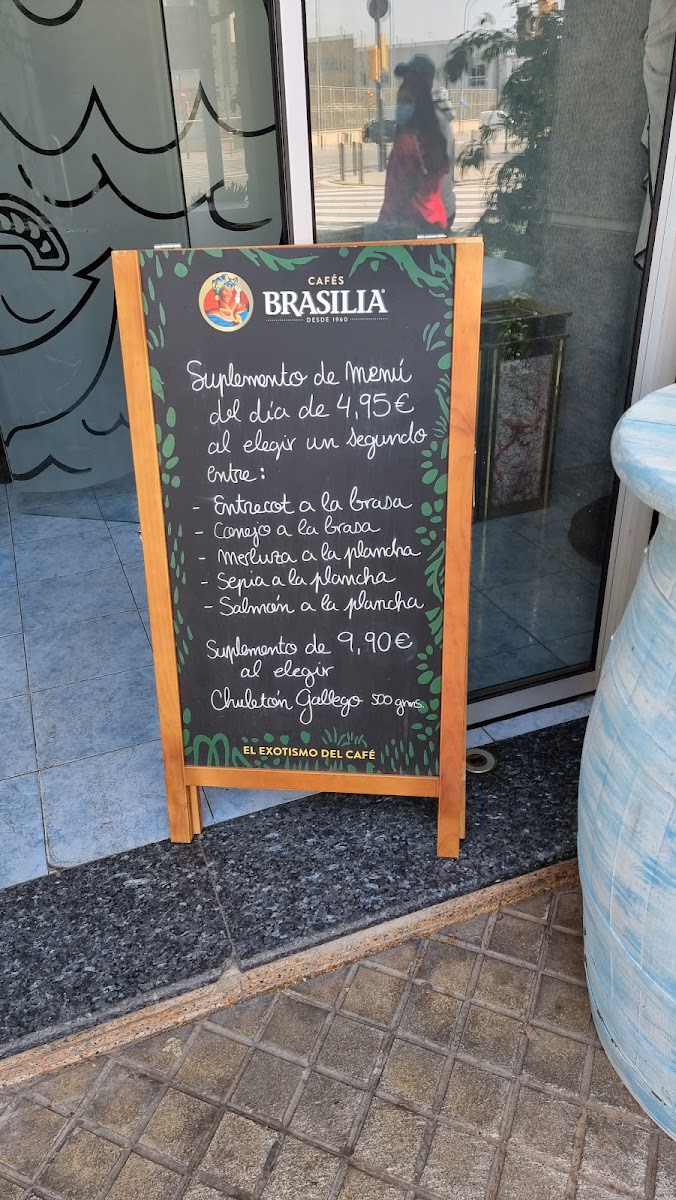 CAFÉS
BRASILIA®
DESDE 1960
Suplemento de Menú
del día de 4,95€
al elegir un segundo
entre:
- Entrecot a la brasa
- Conejo a la brasa
- Merluza a la plancha
- Sepia a la plancha
- Salmón a la plancha
Suplemento de 9,90€
al elegir
Chuletón Gallego 500 grms.
EL EXOTISMO DEL CAFÉ